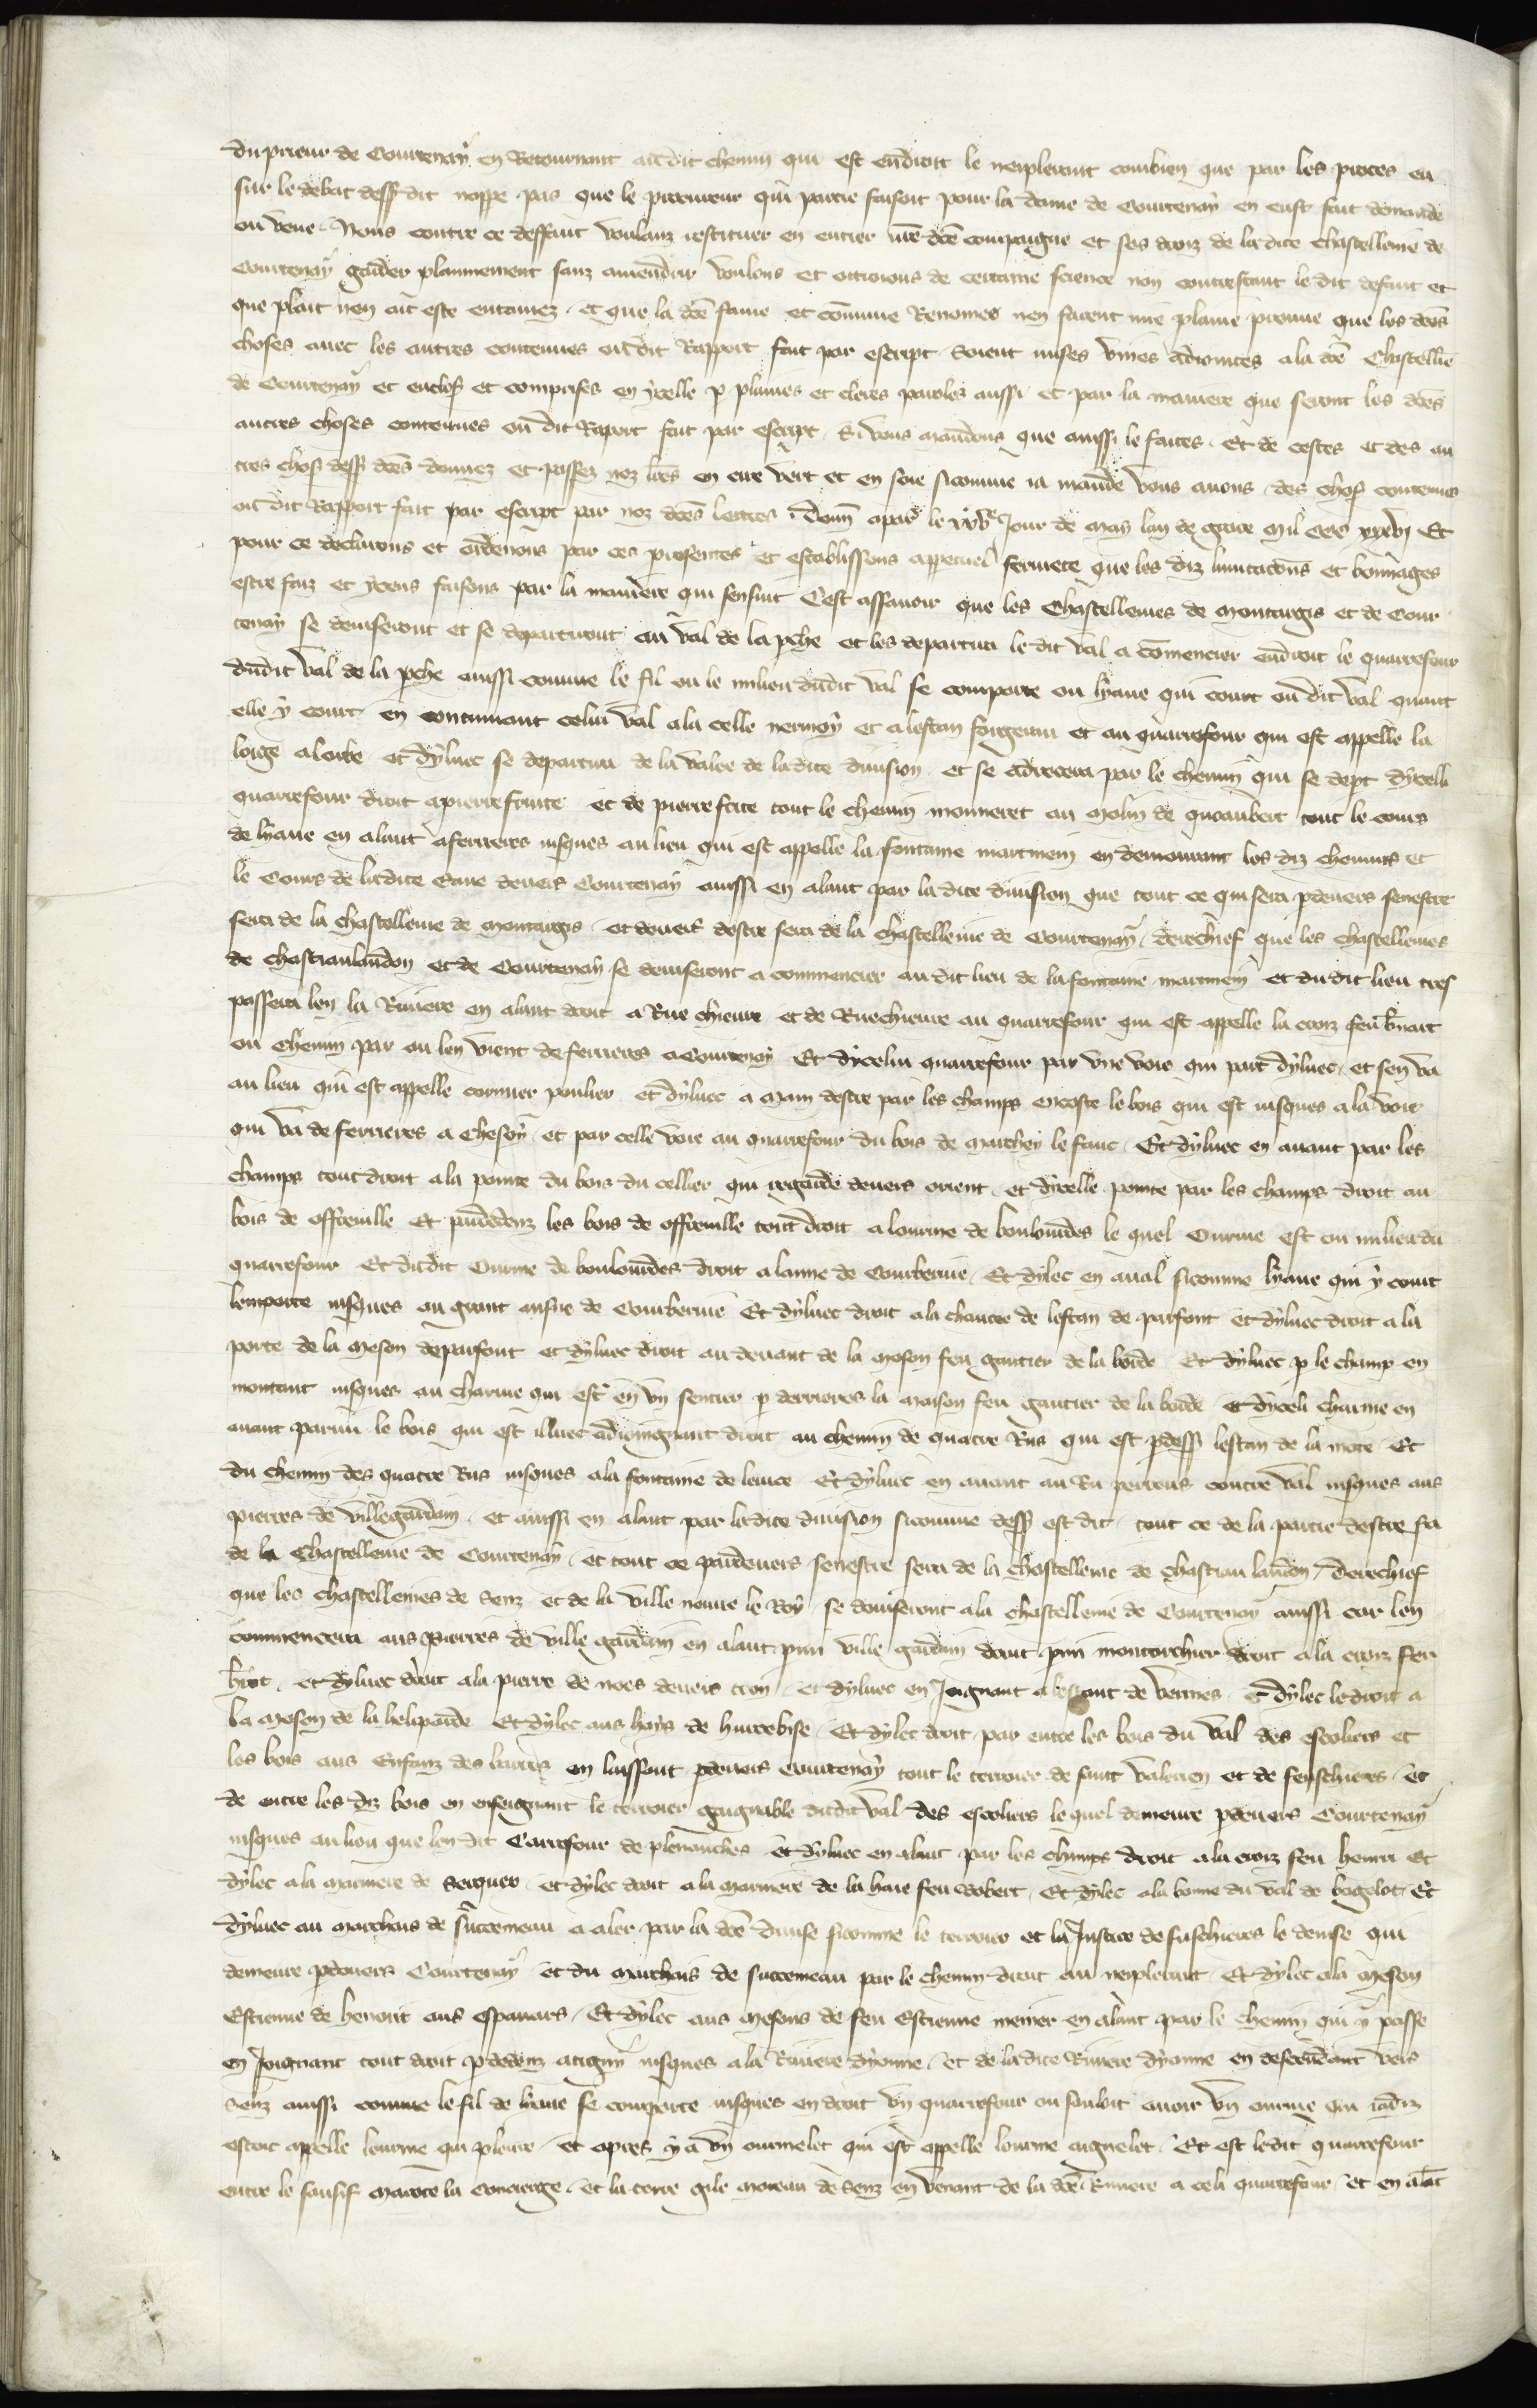 du prieur de Courtenay en Retournant au dit chemin qui est endroit le neplerant combien que par les proces en
sur le debat dess dit nappe pas que le procureur qui partie faisoit pour la dame de Courtenay en eust fait demande
ou veue Nous contre ce deffaut voulanz restituer en entier nre dce compaigne et ses droiz de la dite chastellenie de
Courtenay garder plainnement sanz amendrir voulons et ottroions de certaine science non contrestant le dit defaut et
que plait nen ait este entamez et que la dce fame et commune Renomee nen facent mie plainne prouue que les dces
choses auec les autres contenues ou dit Rapport fait par escript soient mises vnies adiointes a la dce Chastellie
de Courtenay et encloses et comprises en ycelle p plainnes et cleres paroles aussi et par la maniere que seront les dces
autres choses contenues ou dit Raport fait par escript Si vous mandons que ainssi le faites Et de cestes et des au
tres chos dess dces donnez et passez noz lres en cire vert et en soie sicomme ia mande vous auons des chos contenues
ou dit Rapport fait par escript par noz dces lettres Donn a par le Jour de May lan de grace Mil CCC xxxvj Et
pour ce declarons et ordenons par ces presentes et establissons a perpetuel fermete que les diz limitacions et bonnages
estre faiz et yceus faisons par la maniere qui sensuit Cest assauoir que les Chastellenies de Montargis et de Cour
tenay se deuiseront et se departiront au val de la pche et les departira le dit val a commencier endroit le quarrefour
dudit val de la pche aussi comme le fil ou le milieu dudit val se comporte ou lyaue qui court ou dit val quant
elle y court en continuant celui val a la celle nermoy et a lestan forgerin et au quarrefour qui est appelle la
loige aloite et dyluec se departira de la valee de la dite diuision et se adrecera par le chemin qui se dept dycelli
quarrefour droit a pierrefrite et de pierrefrite tout le chemin monneret au molin de tout le cours
de lyaue en alant a ferrieres iusques au lieu qui est appelle la fontaine martmein en demourant les diz chemins et
le Cours de ladite Eaue deuers Courtenay ainssi en alant par ladite diuision que tout ce qui sera pdeuers senestre
sera de la chastellenie de Montargis et deuers destre sera de la chastellenie de Courtenay Derechief que les Chastellenies
de chastiaulandon et de Courtenay se deuiseront a commencier au dit lieu de la fontaine martmein et dudit lieu tres
passera len la Riuiere en alant droit a Rue chieure et de Ruechieure au quarrefour qui est appelle la croiz feu bnart
ou Chemin par ou len vient de ferrieres a Courtenay Et dycelui quarrefour par vne voie qui part dyluec et sen va
au lieu qui est appelle cormier poulier et dyluec a main destre par les champs encoste le bois qui est iusques a la voie
qui va de ferrieres a Chesoy et par celle voie au quarrefour du bois de marchey le fauc Et dyluec en auant par les
champs tout droit a la pointe du bois du cellier qui regarde deuers orient et dycelle pointe par les champs droit au
bois de offreuille Et pmdedenz les bois de offreuille tout droit a lourme de boulouides le quel Ourme est ou milieu du
quarrefour Et dudit Ourme de boulouides droit a lanne de Combreue Et dylec en aual sicomme lyaue qui y court
lemporte iusques au grant ausne de Combreue Et dyluec droit a la chaucee de lestan de parfont et dyluec droit a la
porte de la meson de parfont et dyluec droit au deuant de la meson feu gautier de la borde Et dyluec p le champ en
montant iusques au charme qui est en vn sentier p derrieres la maison feu gautier de la borde et dyceli charme en
auant parmi le bois qui est illuec adioingnant droit au chemin de quatre Rus qui est pdess lestan de la mote Et
du chemin des quatre Rus iusques a la fontaine de leuce Et dyluec en auant au Ru perreus contre val iusques aus
pierres de villegardain et ainssi en alant par ladite diuision sicomme dess est dit tout ce de la partie destre sera
de la Chastellenie de Courtenay et tout ce pardeuers senestre sera de la chastellenie de chastiau landon Derechief
que les chastellenies de Senz et de la ville neuue le Roy se deuiseront a la chastellenie de Courtenay ainssi car len
commencera aus pierres de ville gardain en alant pmi ville gardain droit pmi montorchier droit a la croiz feu
et dyluec droit a la pierre de noes deuers tron et dyluec en Joignant a de Vernes Et dylec ledroit a
la meson de la helipaude Et dylec aus hays de hurtebise Et dylec droit par entre les bois du val des escoliers et
les bois aus Enfanz des barres en laissant pdeuers Courtenay tout le terroier de saint valerien et de feuschieres Et
de entre les diz bois en enseignant le terroier gaignable dudit val des escoliers le quel demeure pdeuers Courtenay
iusques au lieu que len dit Carrefour de plenanches Et dyluec en alant par les champs droit a la croiz feu henri Et
dylec a la marniere de Serquer et dylec droit a la marniere de la haie feu Robert Et dylec a la bonne du val de bagelot Et
dyluec au marchais de surtemeau a aler par la dce diuise sicomme le terroir et la Justice de fuschieres le deuise qui
demeure pdeuers Courtenay et du marchais de surtemeau par le chemin droit au neplerant Et dylec a la meson
Estienne de henout aus espauars Et dylec aus mesons de feu Estienne meiner en alant par le chemin qui y passe
en Joignant tout droit pdedenz atigny iusques a la Riuiere dyonne Et de ladite Riuiere dyonne en descendant vers
Senz ainssi comme le fil de lyaue se comporte iusques en droit vn quarrefour ou souloit auoir vn ourme qui iadiz
estoit appelle lourme qui pleure Et apres y a vn ourmelet qui est appelle lourme aignelet Et est ledit quarrefour
entre le sausif Marote la concierge et la terre gile moreau de Senz en venant de la dce Riuiere a celi quarrefour et en alat